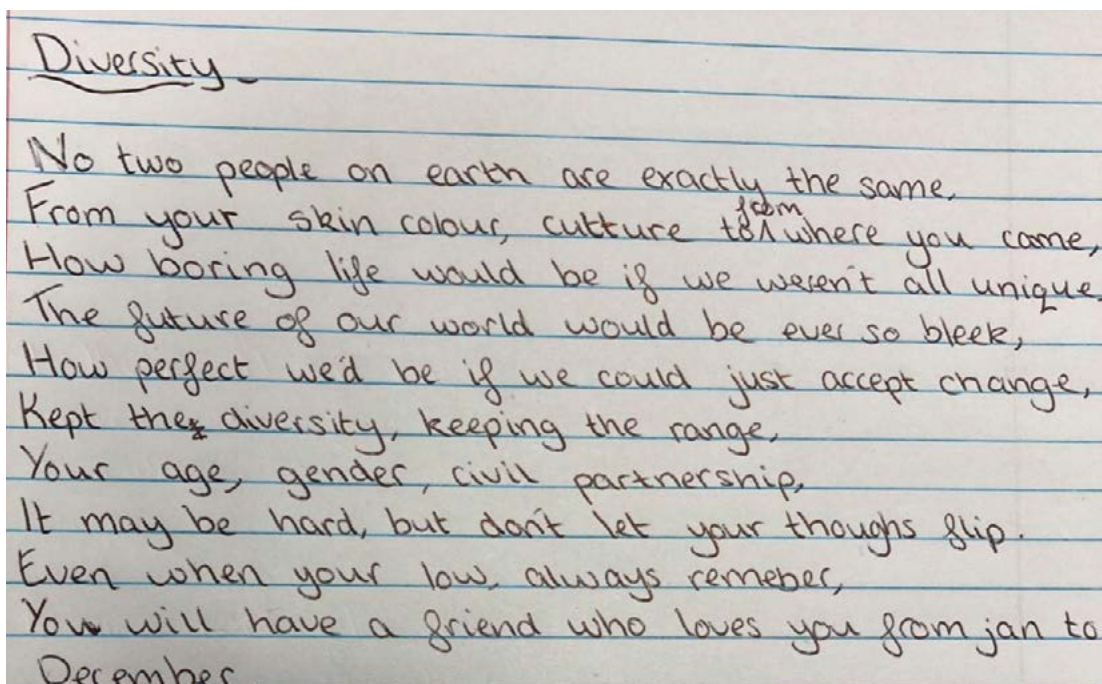 Diversity
No two people on earth are exactly the same,
From your skin colour, culture to from where you came,
How boring life would be if we weren't all unique.
The future of our world would be ever so bleek,
How perfect we'd be if we could just accept change,
Kept the diversity, keeping the range,
Your age, gender, civil partnership,
It may be hard, but don't let your thoughs flip.
Even when your low, always remeber,
You will have a friend who loves you from jan to
December